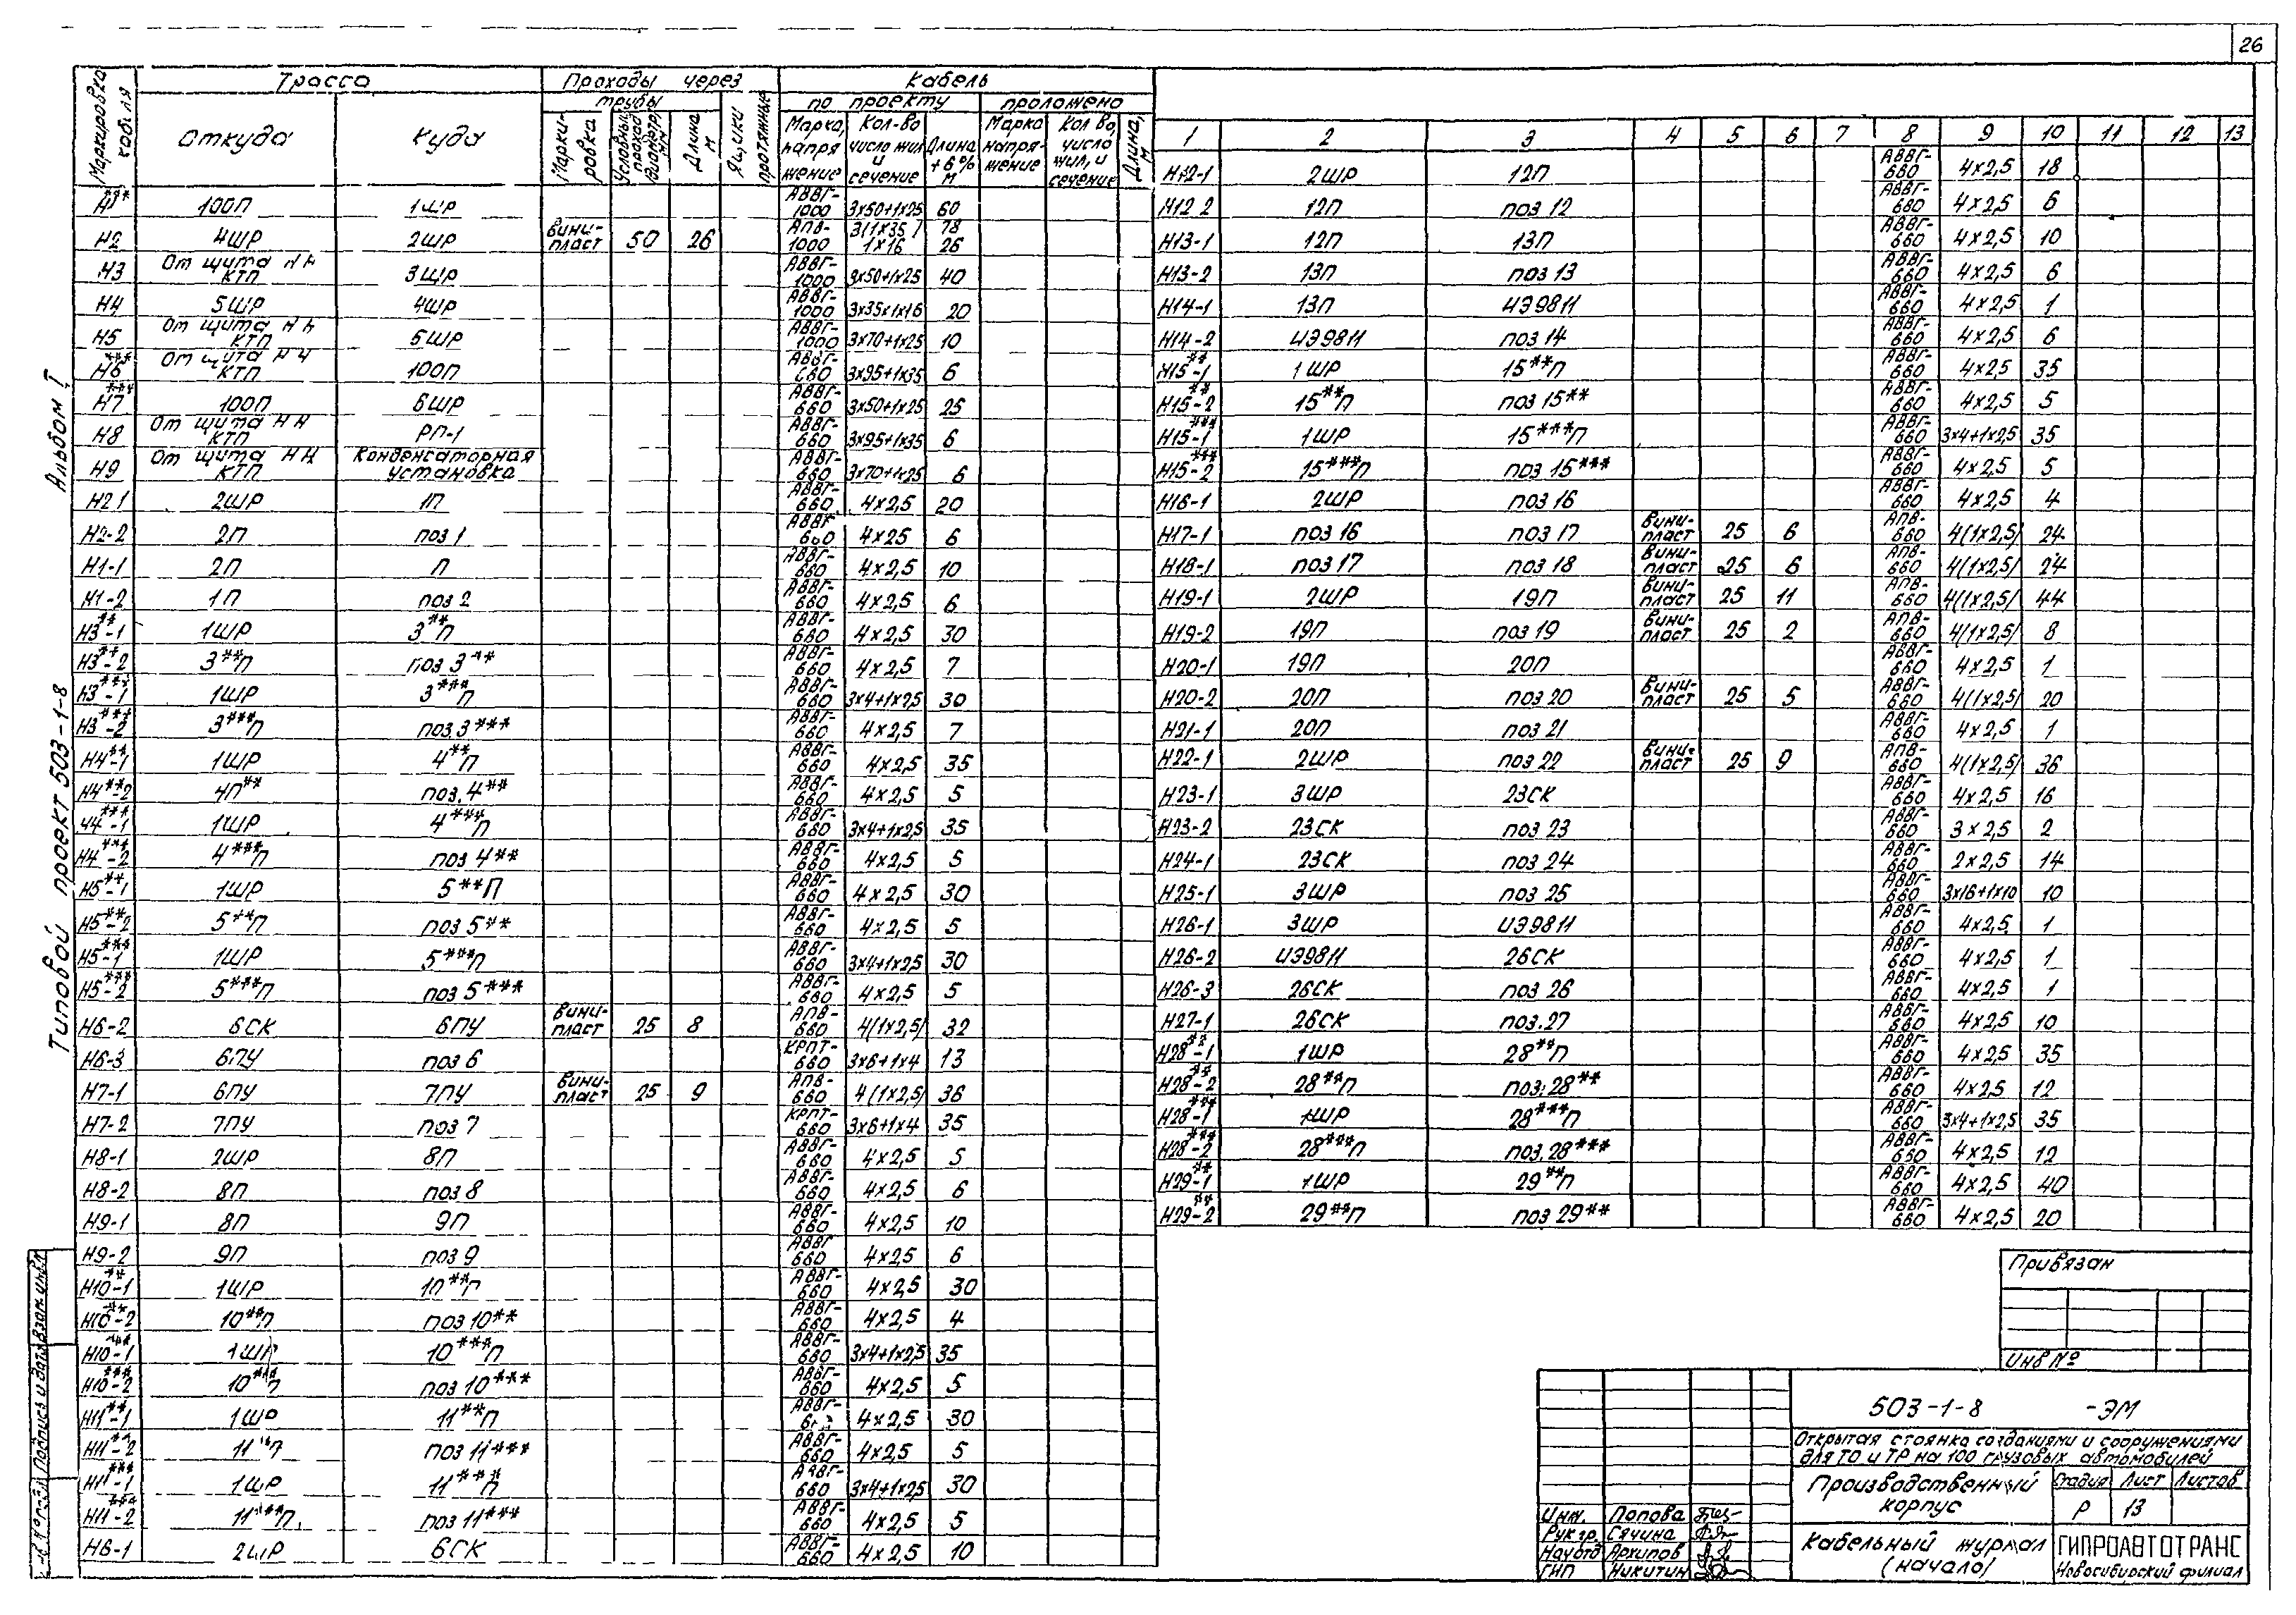 26
Альбом I
Типовой проект 503-1-8
Маркировка кабеля
Трасса
Откуда
Куда
Проходы через
трубы
Марки-ровка
Длина, м
Ящики протяжные
Кабель
по проекту
проложено
Марка, напряжение
Кол-во число жил и сечение
Длина +6% м
Марка напря-жение
Кол во, число жил, и сечение
Длина, м
100П 1ШР АВВГ-1000 3х50+1х25 60
Н2 4ШР 2ШР вини-пласт 50 26 АПВ-1000 3(1х35) 1х16 78 26
Н3 От щита НН КТП 3ШР АВВГ-1000 3х50+1х25 40
Н4 5ШР 4ШР АВВГ-1000 3х35х1х16 20
Н5 От щита НН КТП 5ШР АВВГ-1000 3х70+1х25 10
Н6*** От щита НН КТП 100П АВВГ-660 3х95+1х35 6
Н7*** 100П 6ШР АВВГ-660 3х50+1х25 25
Н8 От щита НН КТП РП-1 АВВГ-660 3х95+1х35 6
Н9 От щита НН КТП Конденсаторная установка АВВГ-660 3х70+1х25 6
Н2 1 2ШР 1П АВВГ-660 4х2,5 20
Н2-2 2П поз 1 АВВГ-660 4х25 6
Н1-1 2П П АВВГ-660 4х2,5 10
Н1-2 1П поз 2 АВВГ-660 4х2,5 6
Н3**-1 1ШР 3**П АВВГ-660 4х2,5 30
Н3**-2 3**П поз 3** АВВГ-660 4х2,5 7
Н3***-1 1ШР 3***П АВВГ-660 3х4+1х2,5 30
Н3***-2 3***П поз.3*** АВВГ-660 4х2,5 7
Н4**-1 1ШР 4**П АВВГ-660 4х2,5 35
Н4**-2 4П** поз.4** АВВГ-660 4х2,5 5
Н4***-1 1ШР 4***П АВВГ-660 3х4+1х2,5 35
Н4***-2 4***П поз 4** АВВГ-660 4х2,5 5
Н5**-1 1ШР 5**П АВВГ-660 4х2,5 30
Н5**-2 5**П поз 5** АВВГ-660 4х2,5 5
Н5***-1 1ШР 5***П АВВГ-660 3х4+1х2,5 30
Н5***-2 5***П поз 5*** АВВГ-660 4х2,5 5
Н6-2 6СК 6ПУ вини-пласт 25 8 АПВ-660 4(1х2,5) 32
Н6-3 6ПУ поз 6 КРПТ-660 3х6+1х4 13
Н7-1 6ПУ 7ПУ вини-пласт 25 9 АПВ-660 4(1х2,5) 36
Н7-2 7ПУ поз 7 КРПТ-660 3х6+1х4 35
Н8-1 2ШР 8П АВВГ-660 4х2,5 5
Н8-2 8П поз 8 АВВГ-660 4х2,5 6
Н9-1 8П 9П АВВГ-660 4х2,5 10
Н9-2 9П поз 9 АВВГ 660 4х2,5 6
Н10**-1 1ШР 10**П АВВГ-660 4х2,5 30
Н10**-2 10**П поз 10** АВВГ-660 4х2,5 4
Н10***-1 1ШР 10***П АВВГ-660 3х4+1х2,5 35
Н10***-2 10***П поз 10*** АВВГ-660 4х2,5 5
Н11**-1 1ШР 11**П АВВГ- 4х2,5 30
Н11**-2 11**П поз 11*** АВВГ-660 4х2,5 5
Н11***-1 1ШР 11***П АВВГ-660 3х4+1х2,5 30
Н11***-2 11***П. поз 11*** АВВГ-660 4х2,5 5
Н6-1 2ШР 6СК АВВГ-660 4х2,5 10
1 2 3 4 5 6 7 8 9 10 11 12 13
Н12-1 2ШР 12П АВВГ-660 4х2,5 18
Н12 2 12П поз 12 АВВГ-660 4х2,5 6
Н13-1 12П 13П АВВГ-660 4х2,5 10
Н13-2 13П поз 13 АВВГ-660 4х2,5 6
Н14-1 13П ИЭ9811 АВВГ-660 4х2,5 1
Н14-2 ИЭ9811 поз 14 АВВГ-660 4х2,5 6
Н15**-1 1ШР 15**П АВВГ-660 4х2,5 35
Н15**-2 15**П поз 15** АВВГ-660 4х2,5 5
Н15***-1 1ШР 15***П АВВГ-660 3х4+1х2,5 35
Н15***-2 15***П поз 15*** АВВГ-660 4х2,5 5
Н16-1 2ШР поз 16 АВВГ-660 4х2,5 4
Н17-1 поз 16 поз 17 вини-пласт 25 6 АПВ-660 4(1х2,5) 24
Н18-1 поз 17 поз 18 вини-пласт 25 6 АПВ-660 4(1х2,5) 24
Н19-1 2ШР 19П вини-пласт 25 11 АПВ-660 4(1х2,5) 44
Н19-2 19П поз 19 вини-пласт 25 2 АПВ-660 4(1х2,5) 8
Н20-1 19П 20П АВВГ-660 4х2,5 1
Н20-2 20П поз 20 вини-пласт 25 5 АВВГ-660 4(1х2,5) 20
Н21-1 20П поз 21 АВВГ-660 4х2,5 1
Н22-1 2ШР поз 22 вини-пласт 25 9 АПВ-660 4(1х2,5) 36
Н23-1 3ШР 23СК АВВГ-660 4х2,5 16
Н23-2 23СК поз 23 АВВГ-660 3х2,5 2
Н24-1 23СК поз 24 АВВГ-660 2х2,5 14
Н25-1 3ШР поз 25 АВВГ-660 3х16+1х10 10
Н26-1 3ШР ИЭ9811 АВВГ-660 4х2,5 1
Н26-2 ИЭ9811 26СК АВВГ-660 4х2,5 1
Н26-3 26СК поз 26 АВВГ-660 4х2,5 1
Н27-1 26СК поз.27 АВВГ-660 4х2,5 10
Н28**-1 1ШР 28**П АВВГ-660 4х2,5 35
Н28**-2 28**П поз.28** АВВГ-660 4х2,5 12
Н28***-1 1ШР 28***П АВВГ-660 3х4+1х2,5 35
Н28***-2 28***П поз.28*** АВВГ-660 4х2,5 12
Н29**-1 1ШР 29**П АВВГ-660 4х2,5 40
Н29**-2 29**П поз 29** АВВГ-660 4х2,5 20
Привязан
Инв №
503-1-8 -ЭМ
Открытая стоянка со зданиями и сооружениями
для ТО и ТР на 100 грузовых автомобилей
Производственный корпус
Стадия Лист Листов
Р 13
Инж. Попова
Рук гр. Сячина
Нач отд Архипов
ГИП Никитин
Кабельный журнал (начало)
ГИПРОАВТОТРАНС
Новосибирский филиал
Подпись и дата
Взам инв